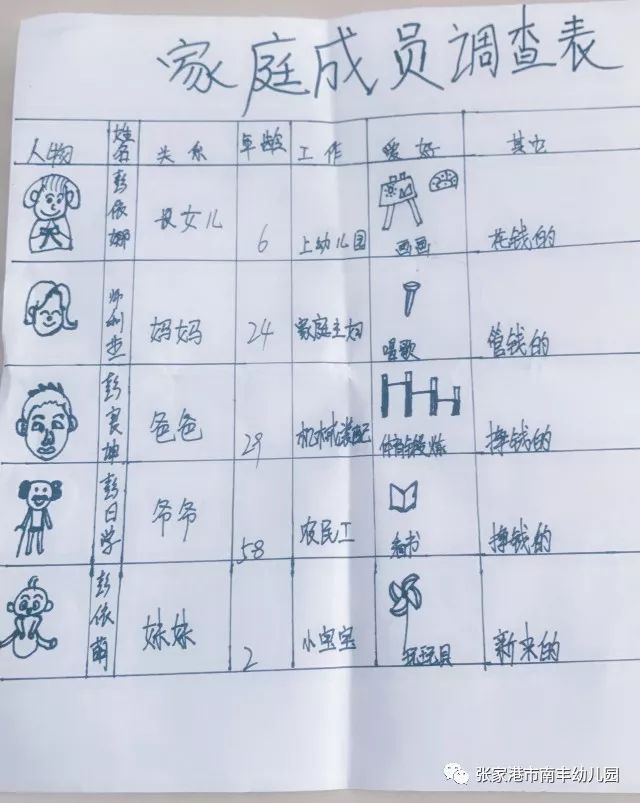 家庭成员调查表
人物 姓名 关系 年龄 工作 爱好 其它
彭依娜 长女儿 6 上幼儿园 画画 花钱的
师利杰 妈妈 24 家庭主妇 唱歌 管钱的
彭衷坤 爸爸 29 机械装配 体育锻炼 挣钱的
彭日学 爷爷 58 农民工 看书 挣钱的
彭依萌 妹妹 2 小宝宝 玩玩具 新来的
张家港市南丰幼儿园